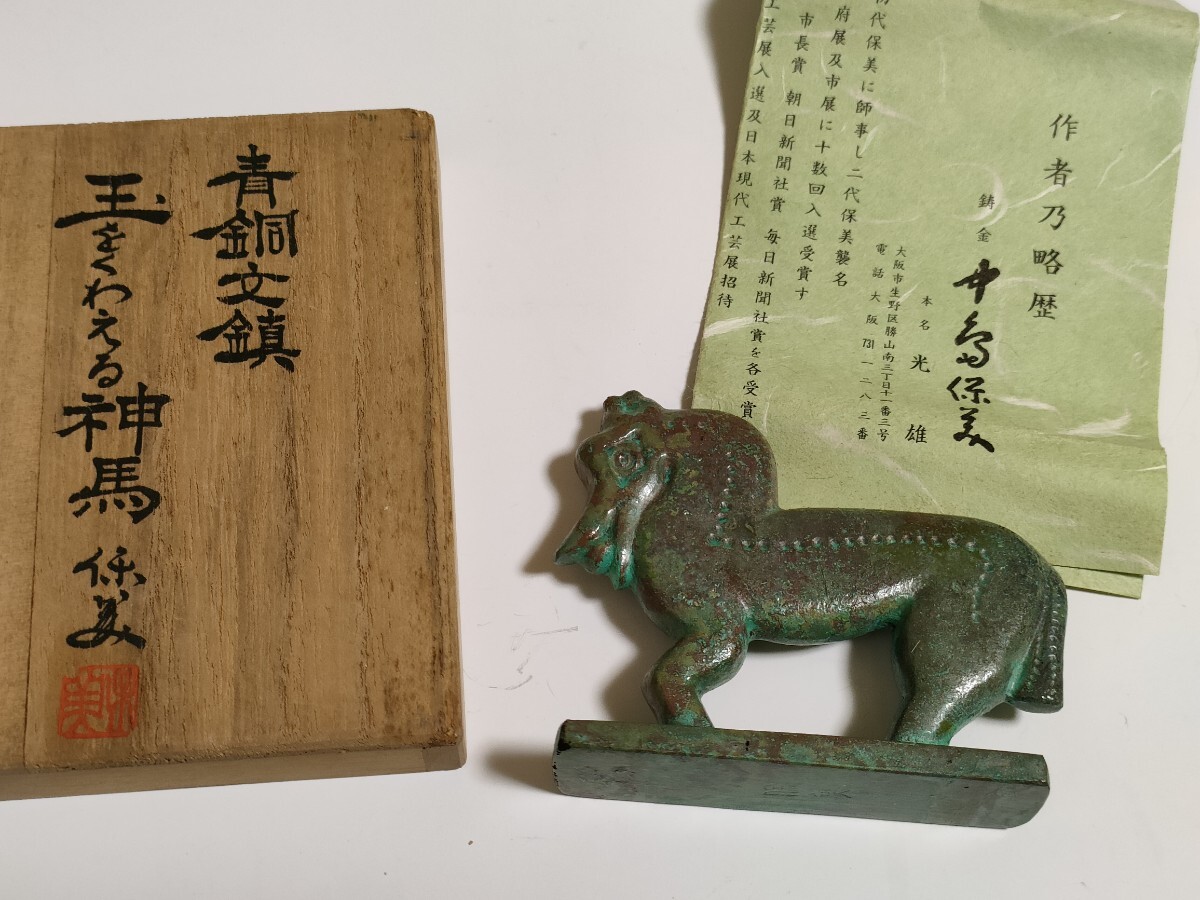 青銅文鎮
玉をくわえる神馬 保美
保美
作者乃略歴
鋳金 中島保美
本名 光雄
大阪市生野区勝山南三丁目十一番三号
電話大阪731一二八三番
初代保美に師事し二代保美襲名
府展及市展に十数回入選受賞す
市長賞 朝日新聞社賞 毎日新聞社賞を各受賞
工芸展入選及日本現代工芸展招待